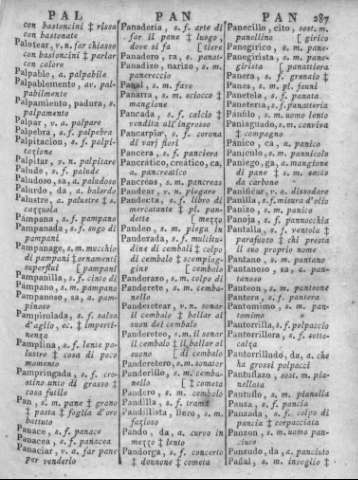 PAL
PAN
PAN 287
con bastoncini ‡ risso
con bastonate
Palotear, v. n. far chiasso
con bastoncini ‡ parlar
con colore
Palpable, a. palpabile
Palpablemento, av. pal-
pabilmente
Palpamiento, padura, s.
palpamento
Palpar, v. a. palpare
Palpebra, s. f. palpebra
Palpitacion, s. f. palpi-
tazione
Palpitar, v. n. palpitare
Palude, s. f. palude
Paludoso, sa, a. paludoso
Palurdo, da, a. balordo
Palustre, a. palustre ‡ s.
cazzuola
Pámpana, s. f. pampano
Pampanada, s. f. sugo di
pampani
Pampanage, s. m. mucchio
di pampani ‡ ornamenti
superflui [pampani
Pampanilla, s. f. cinto di
Pámpano, s. m. pampano
Pampanoso, sa, a. pam-
pinoso
Pampirulada, s. f. salsa
d'aglio, ec. ‡ imperti-
nenza
Pamplina, s. f. lente pa-
lustre ‡ cosa di poco
momento
Pampringada, s. f. cro-
stino unto di grasso ‡
cosa futile
Pan, s. m. pane ‡ grano
‡ pasta ‡ foglia d'oro
battuto
Panace, s. f. panace
Panacea, s. f. panacea
Panaciar, v. a. far pane
per venderlo
Panaderia, s. f. arte di
far il pane ‡ luogo,
dove si fa [tiere
Panadero, ra, s. panat-
Panadizo, narizo, s. m.
panereccio
Panal, s. m. favo
Panarra, s. m. sciocco ‡
mangione
Pancada, s. f. calcio ‡
vendita all'ingrosso
Pancarpia, s. f. corona
di varj fiori
Pancera, s. f. panciera
Pancrático, creático, ca,
a. pancreatico
Pancreas, s. m. pancreas
Pandear, v. n. piegare
Pandecta, s. f. libro di
mercatante ‡ pl. pan-
dette [mezzo
Pandeo, s. m. piega in
Panderada, s. f. moltitu-
dine di cembali ‡ colpo
di cembalo ‡ scempiag-
gine [cembalo
Panderazo, s. m. colpo di
Panderete, s. m. cemba-
nello
Panderetear, v. n. sonar
il cembalo ‡ ballar al
suon del cembalo
Pandereteo, s. m. il sonar
il cembalo ‡ il ballar al
suono [di cembalo
Panderetero, s. m. sonator
Panderillo, s. m. cemba-
nello [‡ cometa
Pandero, s. m. cembalo
Pandilla, s. f. trama
Pandillista, linco, s. m.
fazioso
Pando, da, a. curvo in
mezzo ‡ lento
Pandorga, s. f. concerto
‡ donnone ‡ cometa
Panecillo, cito, sost. m.
panellino [girico
Panegírico, s. m. pane-
Panegirista, s. m. pane-
girista [panattiera
Panera, s. f. granajo ‡
Panes, s. m. pl. fauni
Panetela, s. f. panata
Paneteria, s. f. panatteria
Panfilo, s. m. uomo lento
Paniaguado, s. m. convisa
‡ compagno
Panico, ca, a. panico
Panículo, s. m. pannicolo
Paniego, ga, a. mangione
di pane ‡ s. m. sacco
da carbone
Panificar, v. a. dissodare
Panilla, s. f. misura d'olio
Panizo, s. m. panico
Panoja, s. f. pannocchia
Pantalla, s. f. ventola ‡
parafuoco ‡ chi presta
il suo proprio nome
Pantano, s. m. pantano
Pantanoso, sa, a. pan-
tanoso
Panteon, s. m. panteone
Pantera, s. f. pantera
Pantomimo, s. m. pan-
tomimo
Pantorrilla, s. f. polpaccio
Pantorrillera, s. f. sotto-
calza
Pantorrilludo, da, a. che
ha grossi polpacci
Pantuflazo, sost. m. pia-
nellata
Pantuflo, s. m. pianella
Panza, s. f. pancia
Panzada, s. f. colpo di
pancia ‡ corpacciata
Panzon, s. m. uomo pan-
ciuto
Panzudo, da, a. panciuto
Pañal, s. m. inveglio ‡